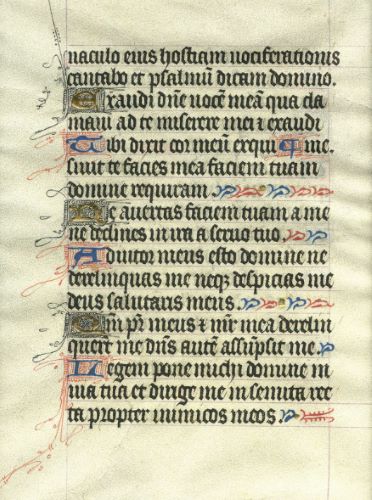 naculo eius hostiam uociferationis
cantabo et psalmū dicam domino.
Exaudi dn̄e uocē meā qua cla
maui ad te miserere mei et exaudi
Tibi dixit cor meū exqui me.
siuit te facies mea faciem tuam
domine requiram.
Ne auertas faciem tuam a me
ne declines in ira a seruo tuo.
Adiutor meus esto domine ne
derelinquas me neqȝ despicias me
deus salutaris meus.
Qm̄ pr̄ meus et mr̄ mea derelin
querūt me dn̄s autē assūpsit me.
Legem pone michi domine in
uia tua et dirige me in semita rec
ta propter inimicos meos.